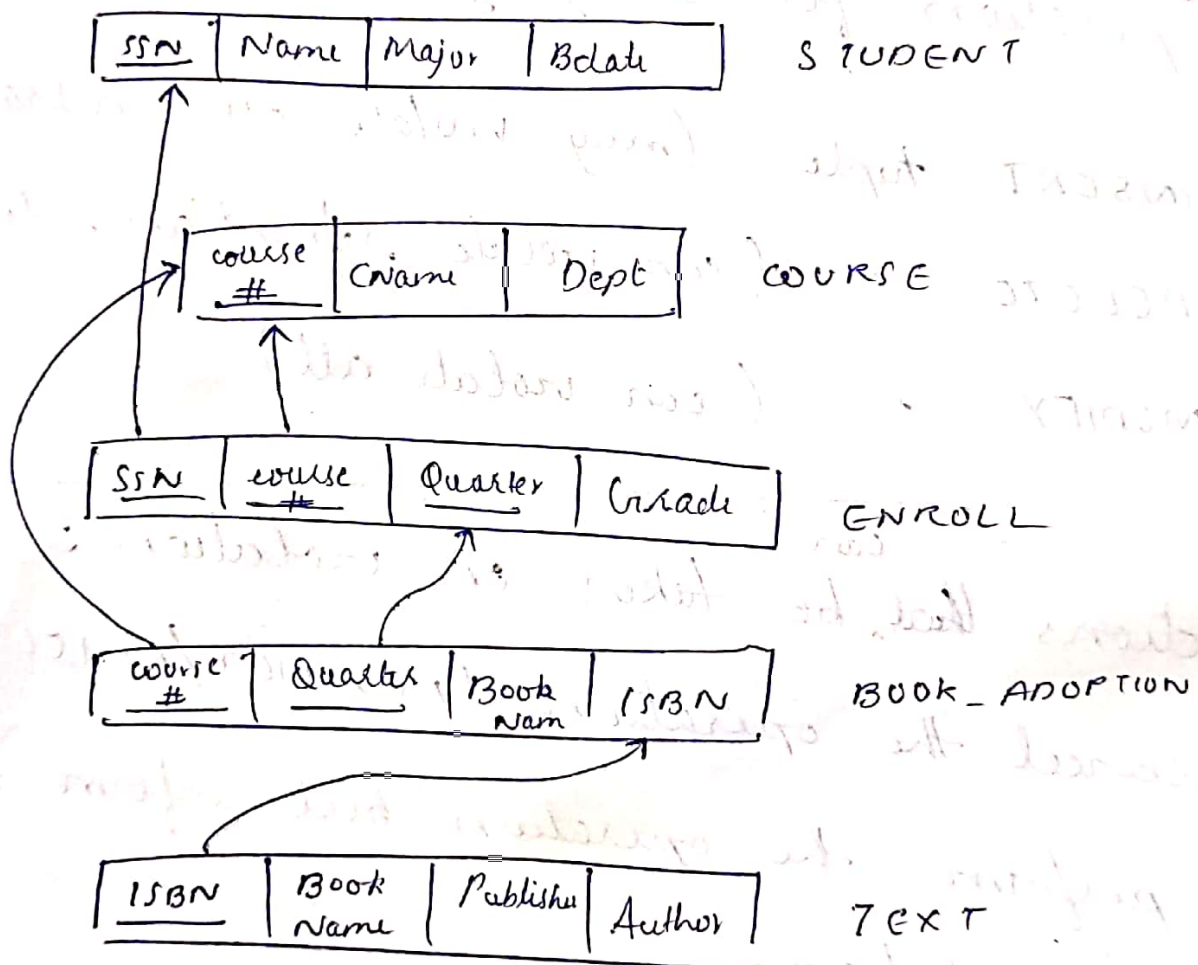 SSN Name Major Bdate STUDENT
course CName Dept COURSE
#
SSN course Quarter Grade ENROLL
#
course Quarter Book ISBN BOOK_ADOPTION
# Nam
ISBN Book Publisher Author TEXT
Name